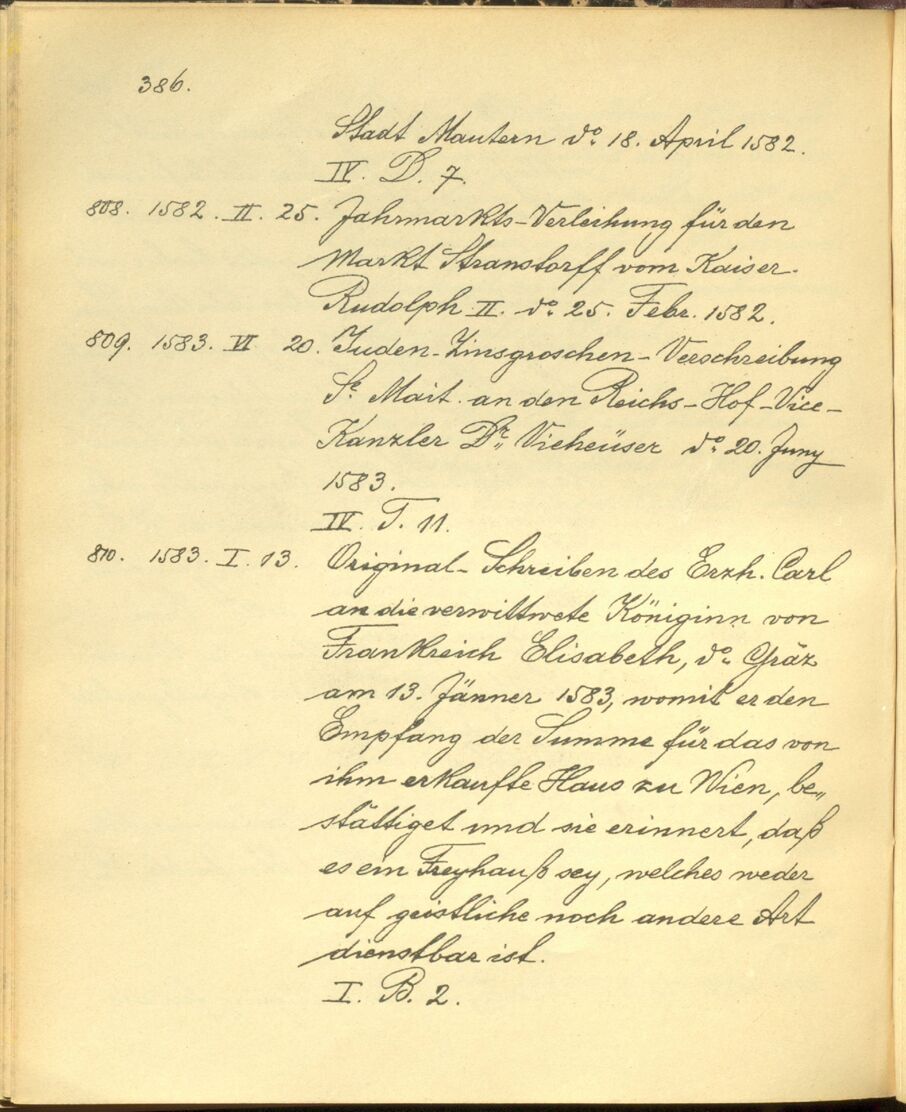 386.
Stadt Mautern do 18. April 1582.
IV. D. 7.
808. 1582. II. 25. Jahrmarkts-Verleihung für den
Markt Stranstorff vom Kaiser.
Rudolph II. do 25. Febr. 1582.
809. 1583. VI 20. Juden-Zinsgroschen-Verschreibung
Sr. Mait. an den Reichs-Hof-Vice-
Kanzler Dr. Vieheüser do 20. Juny
1583.
IV. T. 11.
810. 1583. I. 13. Original-Schreiben des Erzh. Carl
an die verwittwete Königinn von
Frankreich Elisabeth, do Gräz
am 13. Jänner 1583, womit er den
Empfang der Summe für das von
ihm erkaufte Haus zu Wien, be„
stättiget und sie erinnert, daß
es ein Freyhauß sey, welches weder
auf geistliche noch andere Art
dienstbar ist.
I. B. 2.